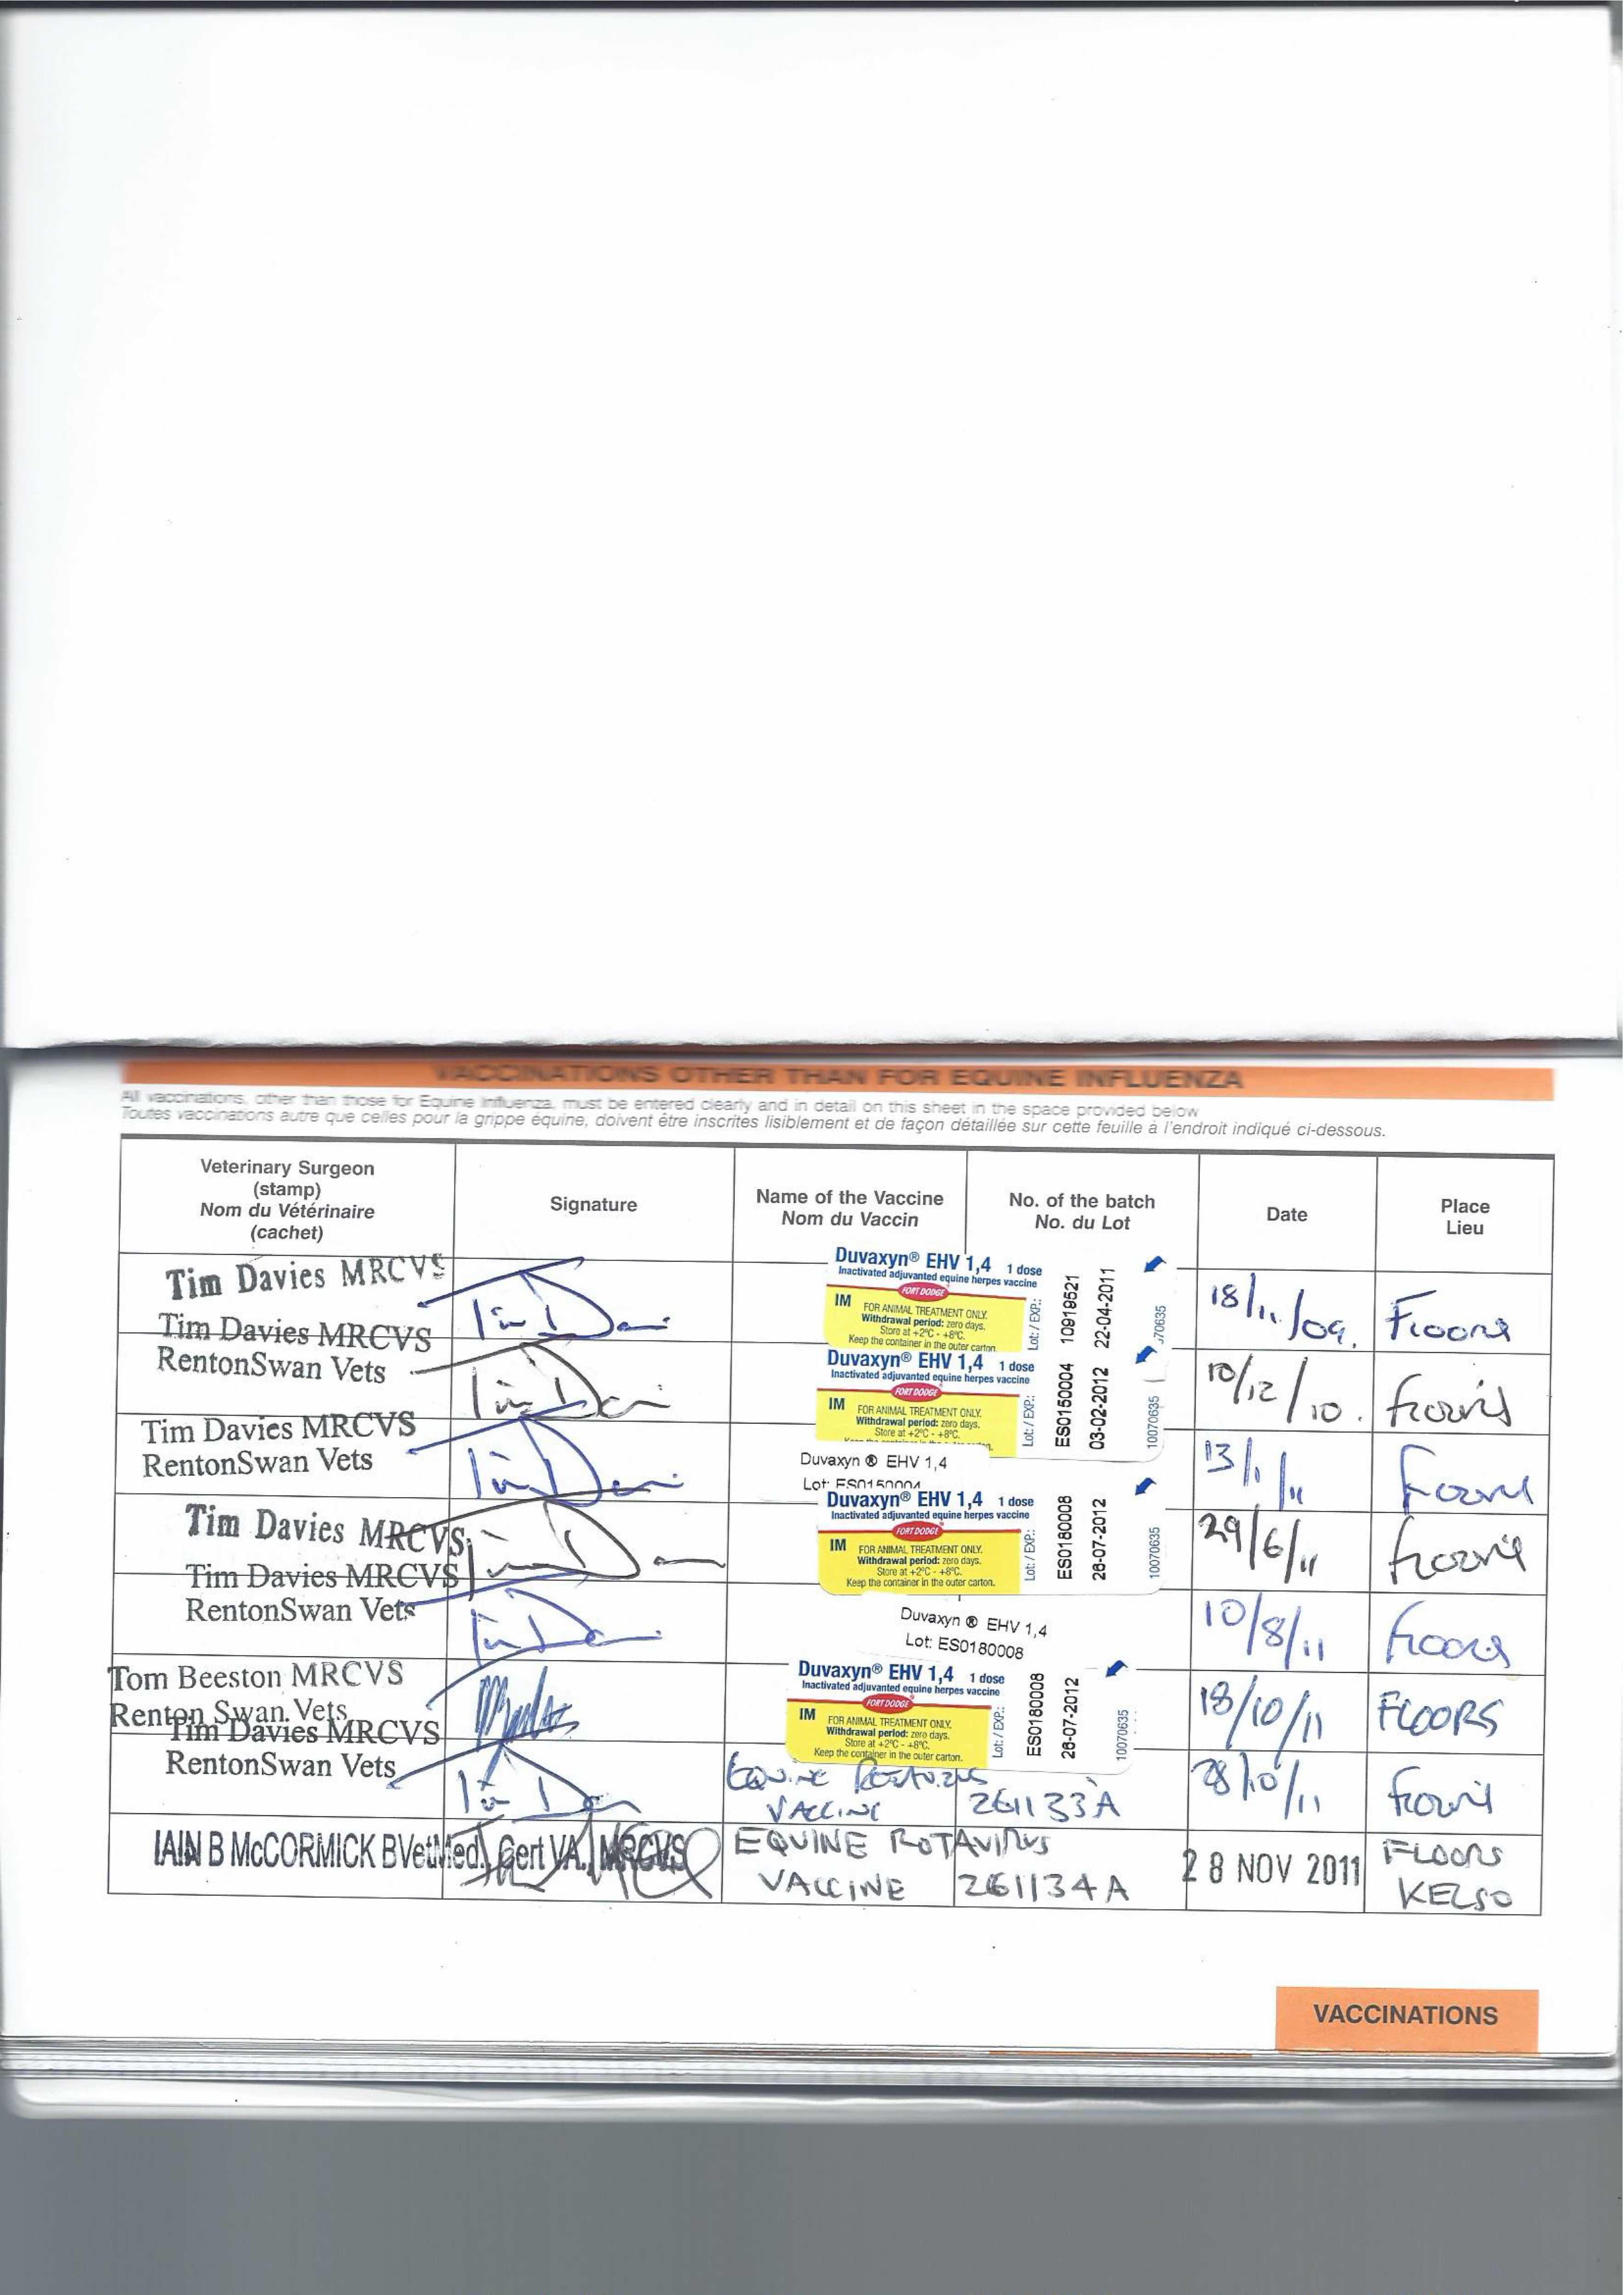 VACCINATIONS OTHER THAN FOR EQUINE INFLUENZA
All vaccinations, other than those for Equine Influenza, must be entered clearly and in detail on this sheet in the space provided below
Toutes vaccinations autre que celles pour la grippe équine, doivent être inscrites lisiblement et de façon détaillée sur cette feuille à l'endroit indiqué ci-dessous.
Veterinary Surgeon
(stamp)
Nom du Vétérinaire
(cachet)
Signature
Name of the Vaccine
Nom du Vaccin
No. of the batch
No. du Lot
Date
Place
Lieu
Tim Davies MRCVS
Duvaxyn® EHV 1,4 1 dose
Inactivated adjuvanted equine herpes vaccine
FORT DODGE
IM FOR ANIMAL TREATMENT ONLY.
Withdrawal period: zero days.
Store at +2°C - +8°C.
Keep the container in the outer carton.
Lot: / EXP.:
10919521
22-04-2011
70635
18/11/09.
Floors
Tim Davies MRCVS
RentonSwan Vets
Duvaxyn® EHV 1,4 1 dose
Inactivated adjuvanted equine herpes vaccine
FORT DODGE
IM FOR ANIMAL TREATMENT ONLY.
Withdrawal period: zero days.
Store at +2°C - +8°C.
Lot: / EXP.:
ES0150004
03-02-2012
10070635
10/12/10.
Floors
Tim Davies MRCVS
RentonSwan Vets
Duvaxyn ® EHV 1,4
Lot: ES0150004
13/1/11
Floors
Tim Davies MRCVS
Duvaxyn® EHV 1,4 1 dose
Inactivated adjuvanted equine herpes vaccine
FORT DODGE
IM FOR ANIMAL TREATMENT ONLY.
Withdrawal period: zero days.
Store at +2°C - +8°C.
Keep the container in the outer carton.
Lot: / EXP.:
ES0180008
26-07-2012
10070635
29/6/11
Floors
Tim Davies MRCVS
RentonSwan Vets
Duvaxyn ® EHV 1,4
Lot: ES0180008
10/8/11
Floors
Tom Beeston MRCVS
Renton Swan. Vets
Duvaxyn® EHV 1,4 1 dose
Inactivated adjuvanted equine herpes vaccine
FORT DODGE
IM FOR ANIMAL TREATMENT ONLY.
Withdrawal period: zero days.
Store at +2°C - +8°C.
Keep the container in the outer carton.
Lot: / EXP.:
ES0180008
26-07-2012
10070635
18/10/11
FLOORS
Tim Davies MRCVS
RentonSwan Vets
Equine Rotavirus
VACCINE
261133A
28/10/11
Floors
IAIN B McCORMICK BVetMed, Cert VA. MRCVS
EQUINE ROTAVIRUS
VACCINE
261134A
28 NOV 2011
FLOORS
KELSO
VACCINATIONS